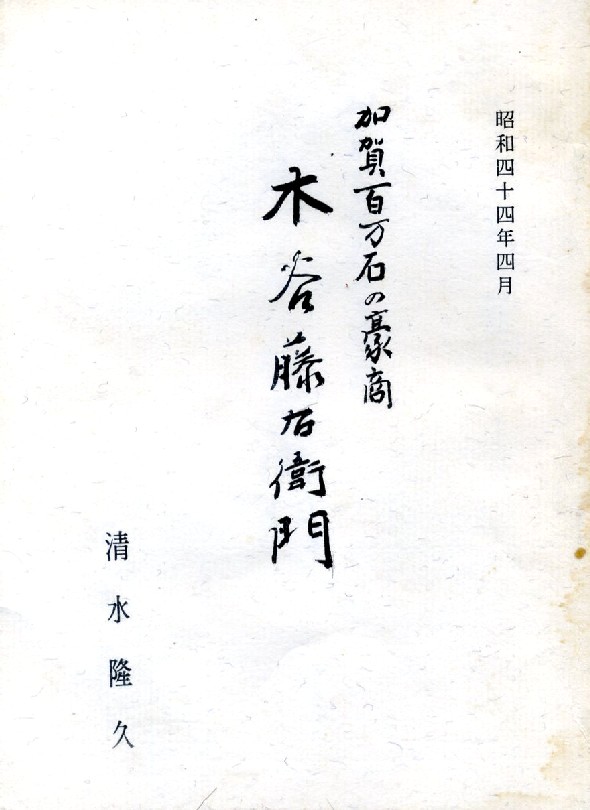 昭和四十四年四月
加賀百万石の豪商
木谷藤右衛門
清水隆久